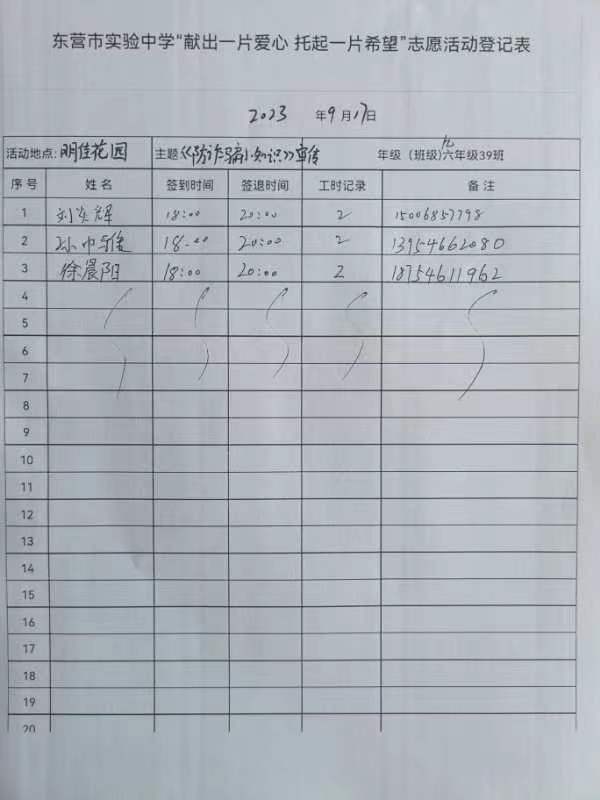 东营市实验中学“献出一片爱心 托起一片希望”志愿活动登记表
2023 年9月17日
活动地点:明佳花园 主题《防诈骗小知识》宣传 年级（班级）九六年级39班
序号 姓名 签到时间 签退时间 工时记录 备注
1 刘 辉 18:00 20:00 2 15006857798
2 孙 18:00 20:00 2 13954662080
3 徐晨阳 18:00 20:00 2 18754611962
4
5
6
7
8
9
10
11
12
13
14
15
16
17
18
19
20